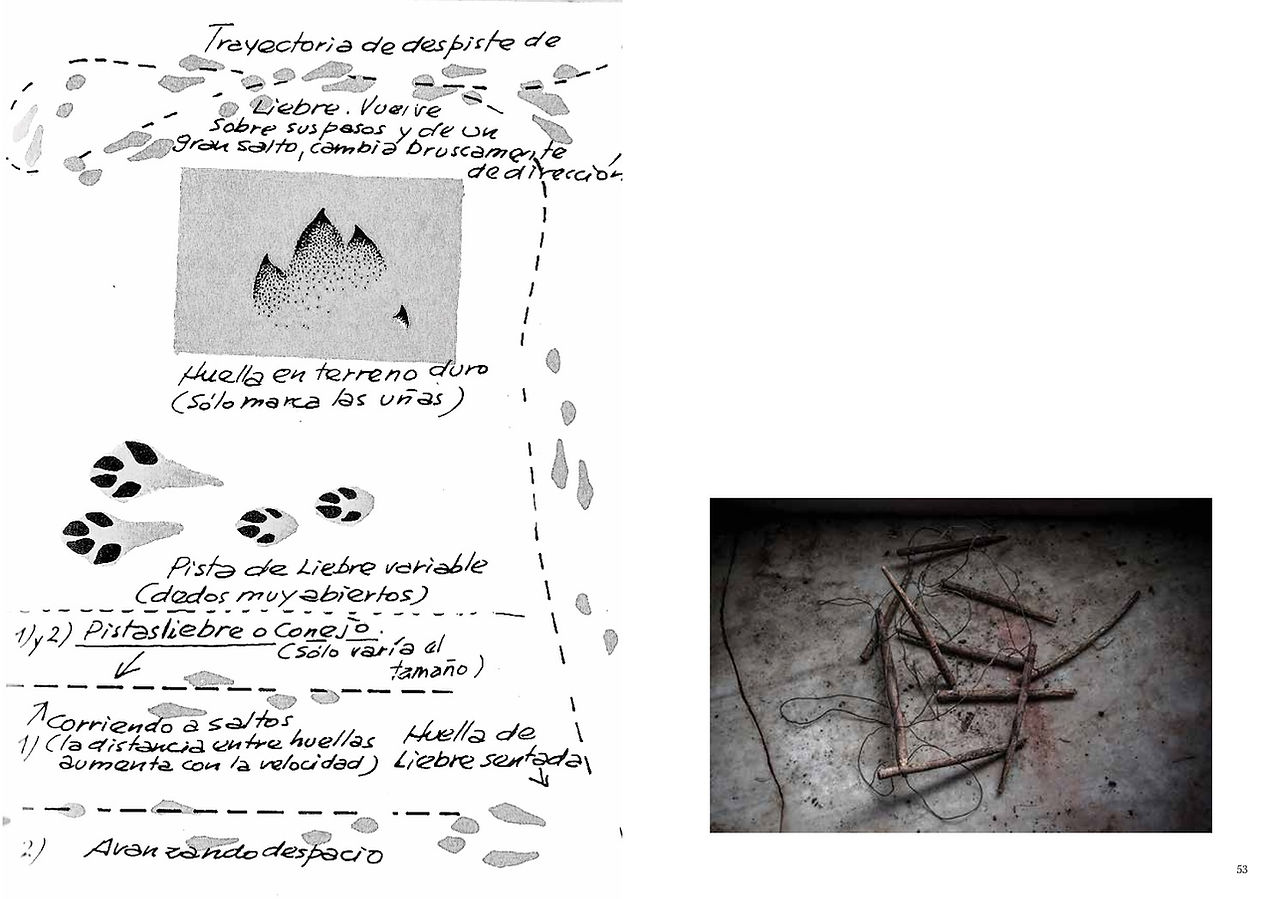 Trayectoria de despiste de
Liebre. Vuelve
sobre sus pasos y de un
gran salto, cambia bruscamente
de dirección
Huella en terreno duro
(Sólo marca las uñas)
Pista de Liebre variable
(dedos muy abiertos)
1) y 2) Pistas liebre o Conejo.
(sólo varía el
tamaño)
Corriendo a saltos
1) (la distancia entre huellas
aumenta con la velocidad)
Huella de
Liebre sentada
2) Avanzando despacio
53